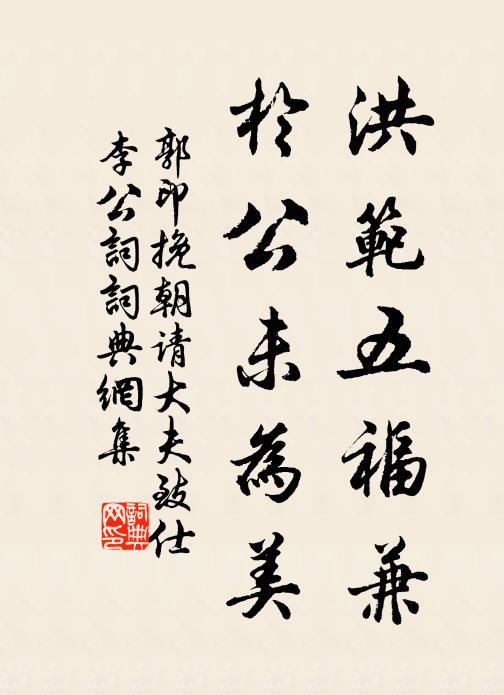 洪範五福兼
於公未為美
郭印挽朝请大夫致仕
李公詞詞典網集
詞典
网印